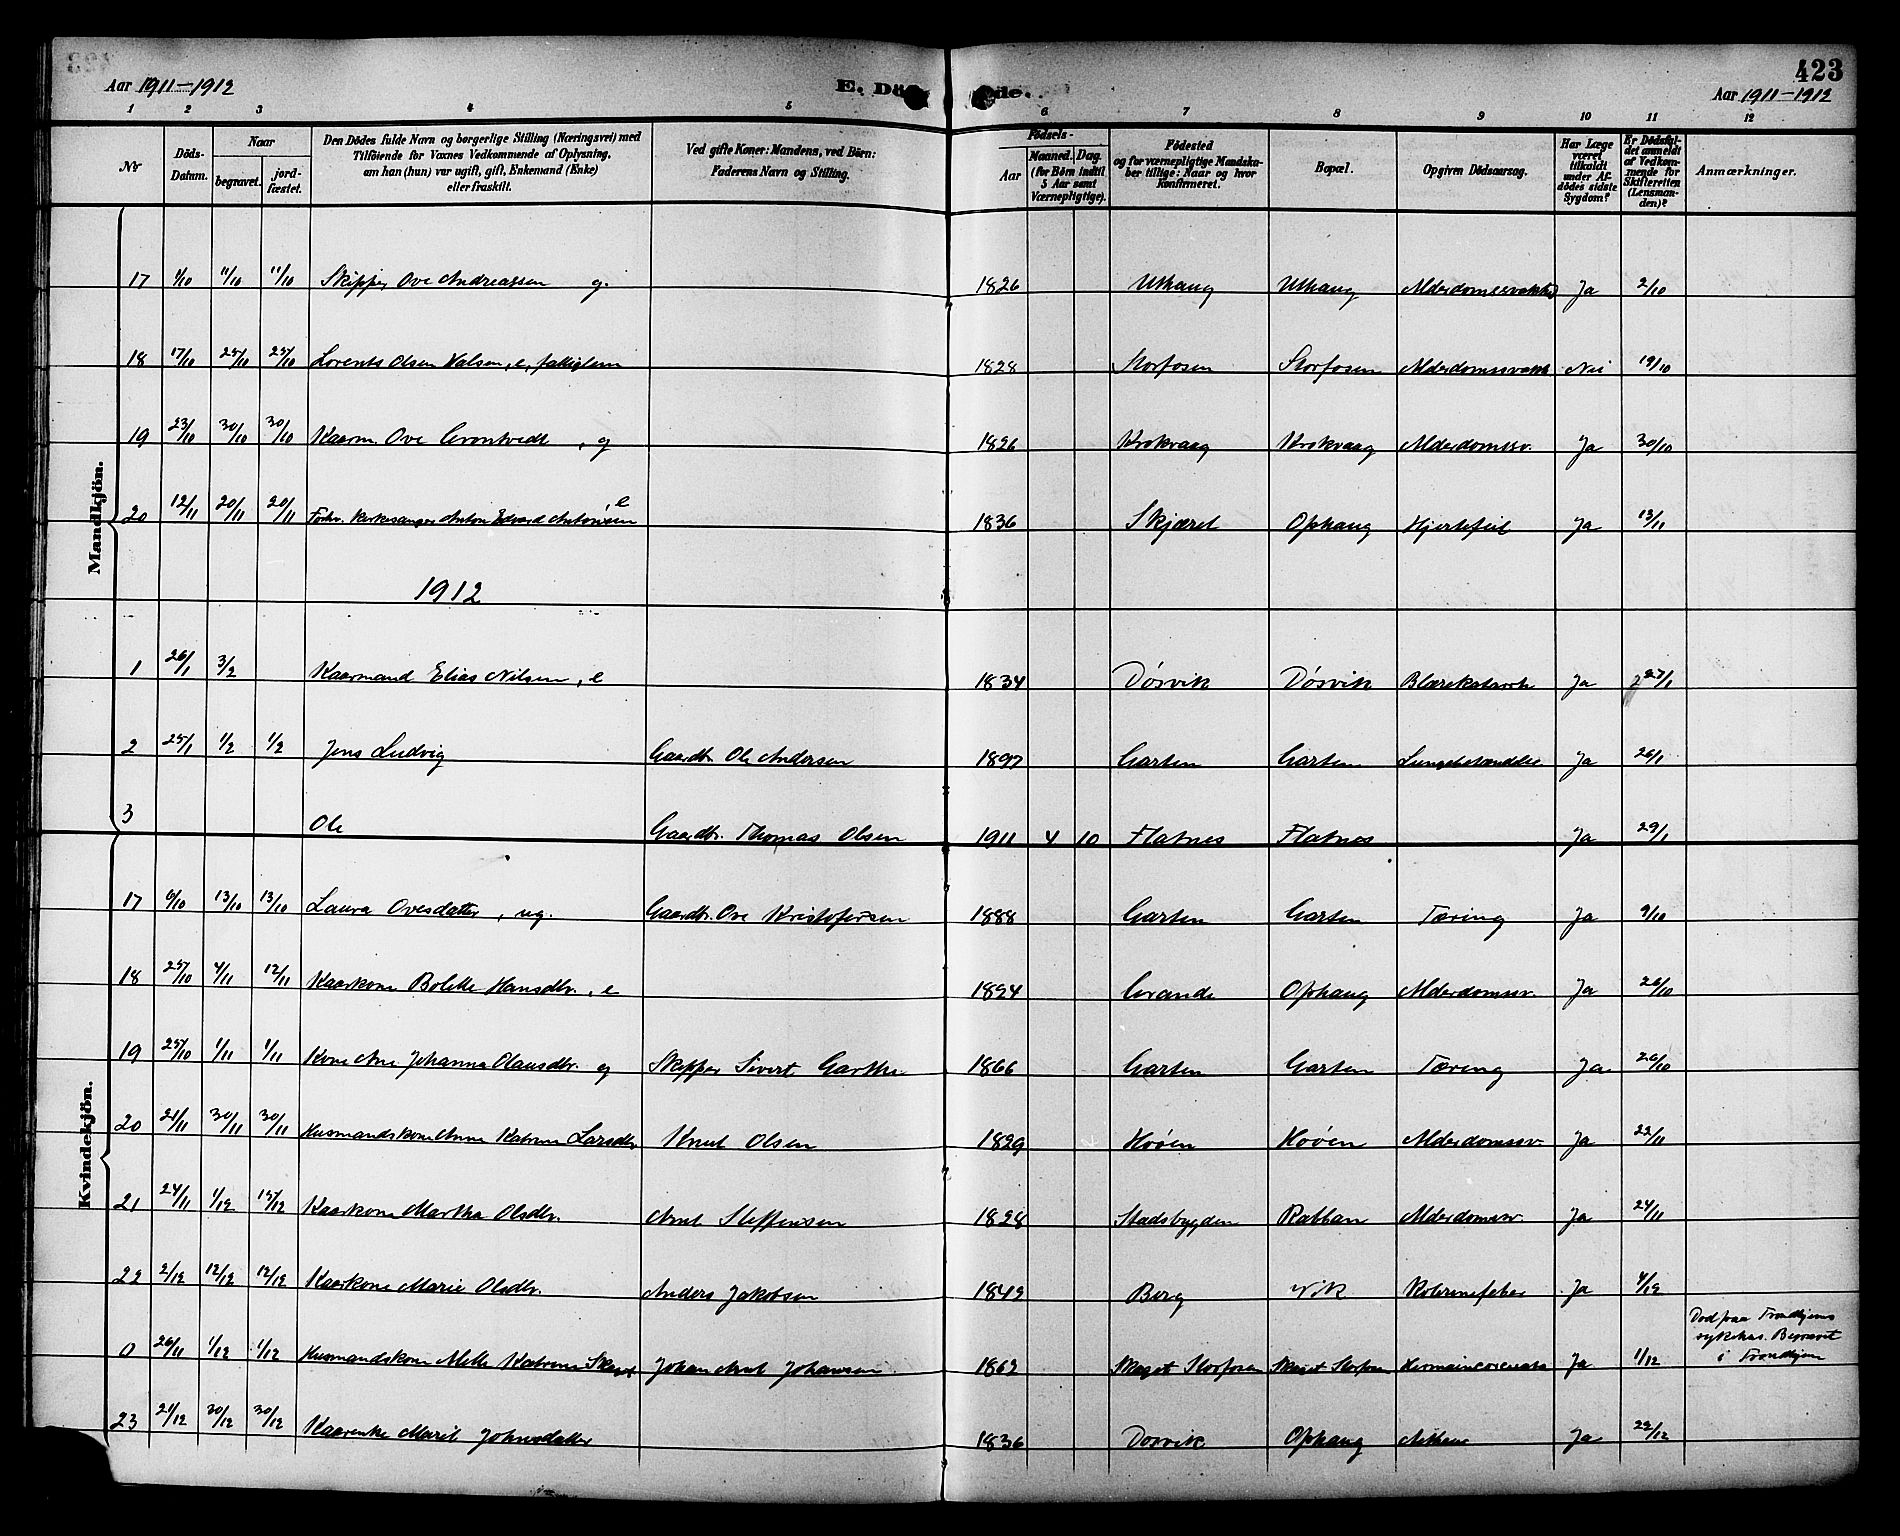 423
Aar 1911-1912
E. Döde.
Aar 1911-1912
1 2 3 4 5 6 7 8 9 10 11 12
Nr
Döds-Datum.
Naar
begravet.
jord-fæstet.
Den Dödes fulde Navn og borgerlige Stilling (Næringsvei) med
Tilföiende for Voxnes Vedkommende af Oplysning,
om han (hun) var ugift, gift, Enkemand (Enke)
eller fraskilt.
Ved gifte Koner: Mandens, ved Börn:
Faderens Navn og Stilling.
Födsels-
Aar
Maaned. Dag.
(for Börn indtil
5 Aar samt
Værnepligtige).
Födested
og for værnepligtige Mandska-
ber tillige: Naar og hvor
Konfirmeret.
Bopæl.
Opgiven Dödsaarsag.
Har Læge
været
tilkaldt
under Af-
dödes sidste
Sygdom?
Er Dödsfal-
det anmeldt
af Vedkom-
mende for
Skifteretten
(Lensman-
den)?
Anmærkninger.
Mandkjön.
17 1/10 11/10 11/10 Skipper Ove Andreassen g. 1826 Uthaug Uthaug Alderdomssvakhed Ja 2/10
18 17/10 25/10 25/10 Lorents Olsen Valsen, e, fattiglem 1828 Storfosen Storfosen Alderdomssvakh Nei 19/10
19 23/10 30/10 30/10 Kaarm. Ove Grontvedt, g 1826 Krokvaag Krokvaag Alderdomssv. Ja 30/10
20 12/11 20/11 20/11 Forhv. Kirkesanger Anton Edvard Antonisen, e 1836 Skjæret Ophaug Hjertefeil Ja 13/11
1912
1 26/1 3/2 Kaarmand Elias Nilsen, e 1834 Døsvik Døsvik Blærekatarrh Ja 27/1
2 25/1 1/2 1/2 Jens Ludvig Gaardbr. Ole Andersen 1897 Garten Garten Lungebetændelse Ja 26/1
3 Ole Gaardbr. Thomas Olsen 1911 4 10 Flatnes Flatnes Ja 29/1
Kvindekjön.
17 6/10 13/10 13/10 Laura Ovesdatter, ug. Gaardbr. Ove Kristofersen 1888 Garten Garten Tæring Ja 9/10
18 25/10 4/11 12/11 Kaarkone Bolette Hansdtr., e 1824 Grande Ophaug Alderdomssv. Ja 26/10
19 25/10 1/11 1/11 Kone Ane Johanna Olausdtr. g Skipper Sivert Garthe 1866 Garten Garten Tæring Ja 26/10
20 21/11 30/11 30/11 Husmandskone Anna Katrine Larsdtr. Knut Olsen 1829 Hoøen Hoøen Alderdomssv. Ja 22/11
21 24/11 1/12 15/12 Kaarkone Martha Olsdtr. Arnt Steffensen 1828 Stadsbygden Rabban Alderdomssv. Ja 24/11
22 2/12 12/12 12/12 Kaarkone Marie Olsdtr. Anders Jakobsen 1849 Berg Vik Ja 4/12
0 26/11 1/12 1/12 Husmandskone Mette Katrine Johan Arnt Johansen 1862 Skaget Storfosen Skaget Storfosen Ja 1/12
Død paa Trondhjems
sykehus. Begravet
i Trondhjem
23 21/12 30/12 30/12 Kaarenke Marit Johnsdatter 1836 Dosvik Ophaug Ja 22/12